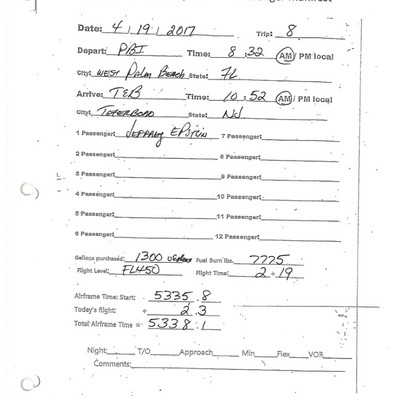 Manifest
Date: 4/19/2017 Trip: 8
Depart: PBI Time: 8:32 AM / PM local
City: WEST Palm Beach State: FL
Arrive: TEB Time: 10:52 AM / PM local
City: State: NJ
1 Passenger: 7 Passenger:
2 Passenger: 8 Passenger:
3 Passenger: 9 Passenger:
4 Passenger: 10 Passenger:
5 Passenger: 11 Passenger:
6 Passenger: 12 Passenger:
Gallons purchased: 1300 Fuel Burn lbs. 7775
Flight Level: FL450 Flight Time: 2+19
Airframe Time: Start: 5335.8
Today's flight: + 2.3
Total Airframe Time = 5338.1
Night: T/O Approach Min Flex VOR
Comments: